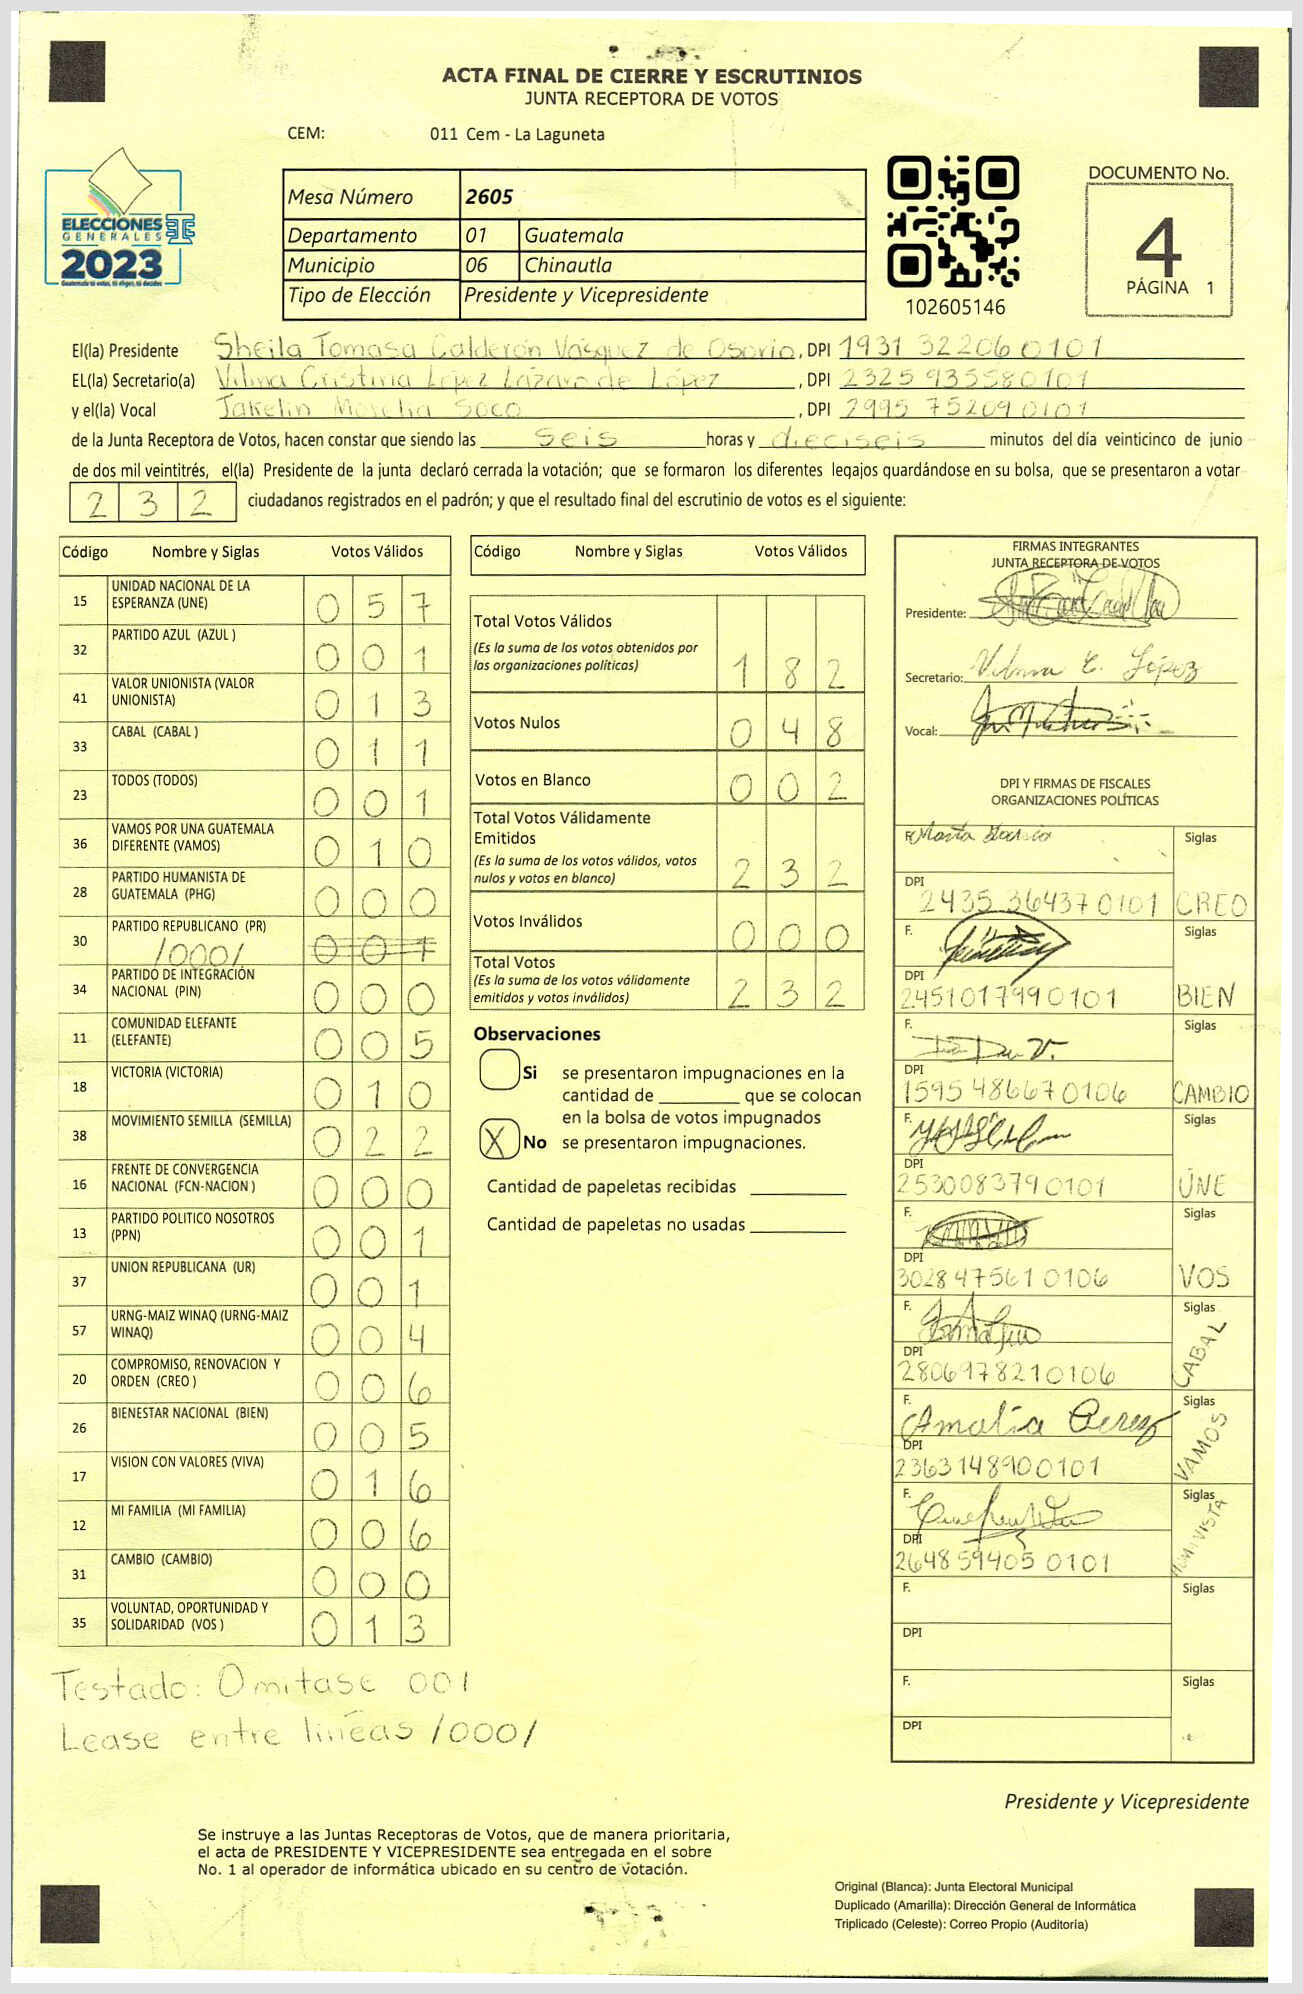 ACTA FINAL DE CIERRE Y ESCRUTINIOS
JUNTA RECEPTORA DE VOTOS
CEM: 011 Cem - La Laguneta
ELECCIONES
GENERALES
2023
Mesa Número 2605
Departamento 01 Guatemala
Municipio 06 Chinautla
Tipo de Elección Presidente y Vicepresidente
102605146
DOCUMENTO No.
4
PÁGINA 1
El(la) Presidente Sheila Tomasa Calderón Vásquez de Osorio, DPI 1931 32206 0101
EL(la) Secretario(a) Vilma Cristina López Lázaro de López, DPI 2325 93558 0101
y el(la) Vocal Jakelin Soco, DPI 2995 75209 0101
de la Junta Receptora de Votos, hacen constar que siendo las seis horas y dieciseis minutos del día veinticinco de junio
de dos mil veintitrés, el(la) Presidente de la junta declaró cerrada la votación; que se formaron los diferentes legajos guardándose en su bolsa, que se presentaron a votar
232 ciudadanos registrados en el padrón; y que el resultado final del escrutinio de votos es el siguiente:
Código Nombre y Siglas Votos Válidos
15 UNIDAD NACIONAL DE LA ESPERANZA (UNE) 057
32 PARTIDO AZUL (AZUL ) 001
41 VALOR UNIONISTA (VALOR UNIONISTA) 013
33 CABAL (CABAL ) 011
23 TODOS (TODOS) 001
36 VAMOS POR UNA GUATEMALA DIFERENTE (VAMOS) 010
28 PARTIDO HUMANISTA DE GUATEMALA (PHG) 000
30 PARTIDO REPUBLICANO (PR) /000/ 001
34 PARTIDO DE INTEGRACIÓN NACIONAL (PIN) 000
11 COMUNIDAD ELEFANTE (ELEFANTE) 005
18 VICTORIA (VICTORIA) 010
38 MOVIMIENTO SEMILLA (SEMILLA) 022
16 FRENTE DE CONVERGENCIA NACIONAL (FCN-NACION ) 000
13 PARTIDO POLITICO NOSOTROS (PPN) 001
37 UNION REPUBLICANA (UR) 001
57 URNG-MAIZ WINAQ (URNG-MAIZ WINAQ) 004
20 COMPROMISO, RENOVACION Y ORDEN (CREO ) 006
26 BIENESTAR NACIONAL (BIEN) 005
17 VISION CON VALORES (VIVA) 016
12 MI FAMILIA (MI FAMILIA) 006
31 CAMBIO (CAMBIO) 000
35 VOLUNTAD, OPORTUNIDAD Y SOLIDARIDAD (VOS ) 013
Testado: Omitase 001
Lease entre lineas /000/
Código Nombre y Siglas Votos Válidos
Total Votos Válidos 182
(Es la suma de los votos obtenidos por
las organizaciones políticas)
Votos Nulos 048
Votos en Blanco 002
Total Votos Válidamente
Emitidos 232
(Es la suma de los votos válidos, votos
nulos y votos en blanco)
Votos Inválidos 000
Total Votos 232
(Es la suma de los votos válidamente
emitidos y votos inválidos)
Observaciones
Si se presentaron impugnaciones en la
cantidad de ________ que se colocan
en la bolsa de votos impugnados
X No se presentaron impugnaciones.
Cantidad de papeletas recibidas
Cantidad de papeletas no usadas
FIRMAS INTEGRANTES
JUNTA RECEPTORA DE VOTOS
Presidente:
Secretario: Vilma C. López
Vocal:
DPI Y FIRMAS DE FISCALES
ORGANIZACIONES POLÍTICAS
F. Siglas
DPI 2435 36437 0101 CREO
F. Siglas
DPI 2451017990101 BIEN
F. Siglas
DPI 1595 48667 0106 CAMBIO
F. Siglas
DPI 2530083790101 UNE
F. Siglas
DPI 3028 47561 0106 VOS
F. Siglas
DPI 2806978210106 CABAL
F. Amalia Perez Siglas
DPI 2363148900101 VAMOS
F. Siglas
DPI 2648 59405 0101
F. Siglas
DPI
F. Siglas
DPI
Presidente y Vicepresidente
Se instruye a las Juntas Receptoras de Votos, que de manera prioritaria,
el acta de PRESIDENTE Y VICEPRESIDENTE sea entregada en el sobre
No. 1 al operador de informática ubicado en su centro de votación.
Original (Blanca): Junta Electoral Municipal
Duplicado (Amarilla): Dirección General de Informática
Triplicado (Celeste): Correo Propio (Auditoría)